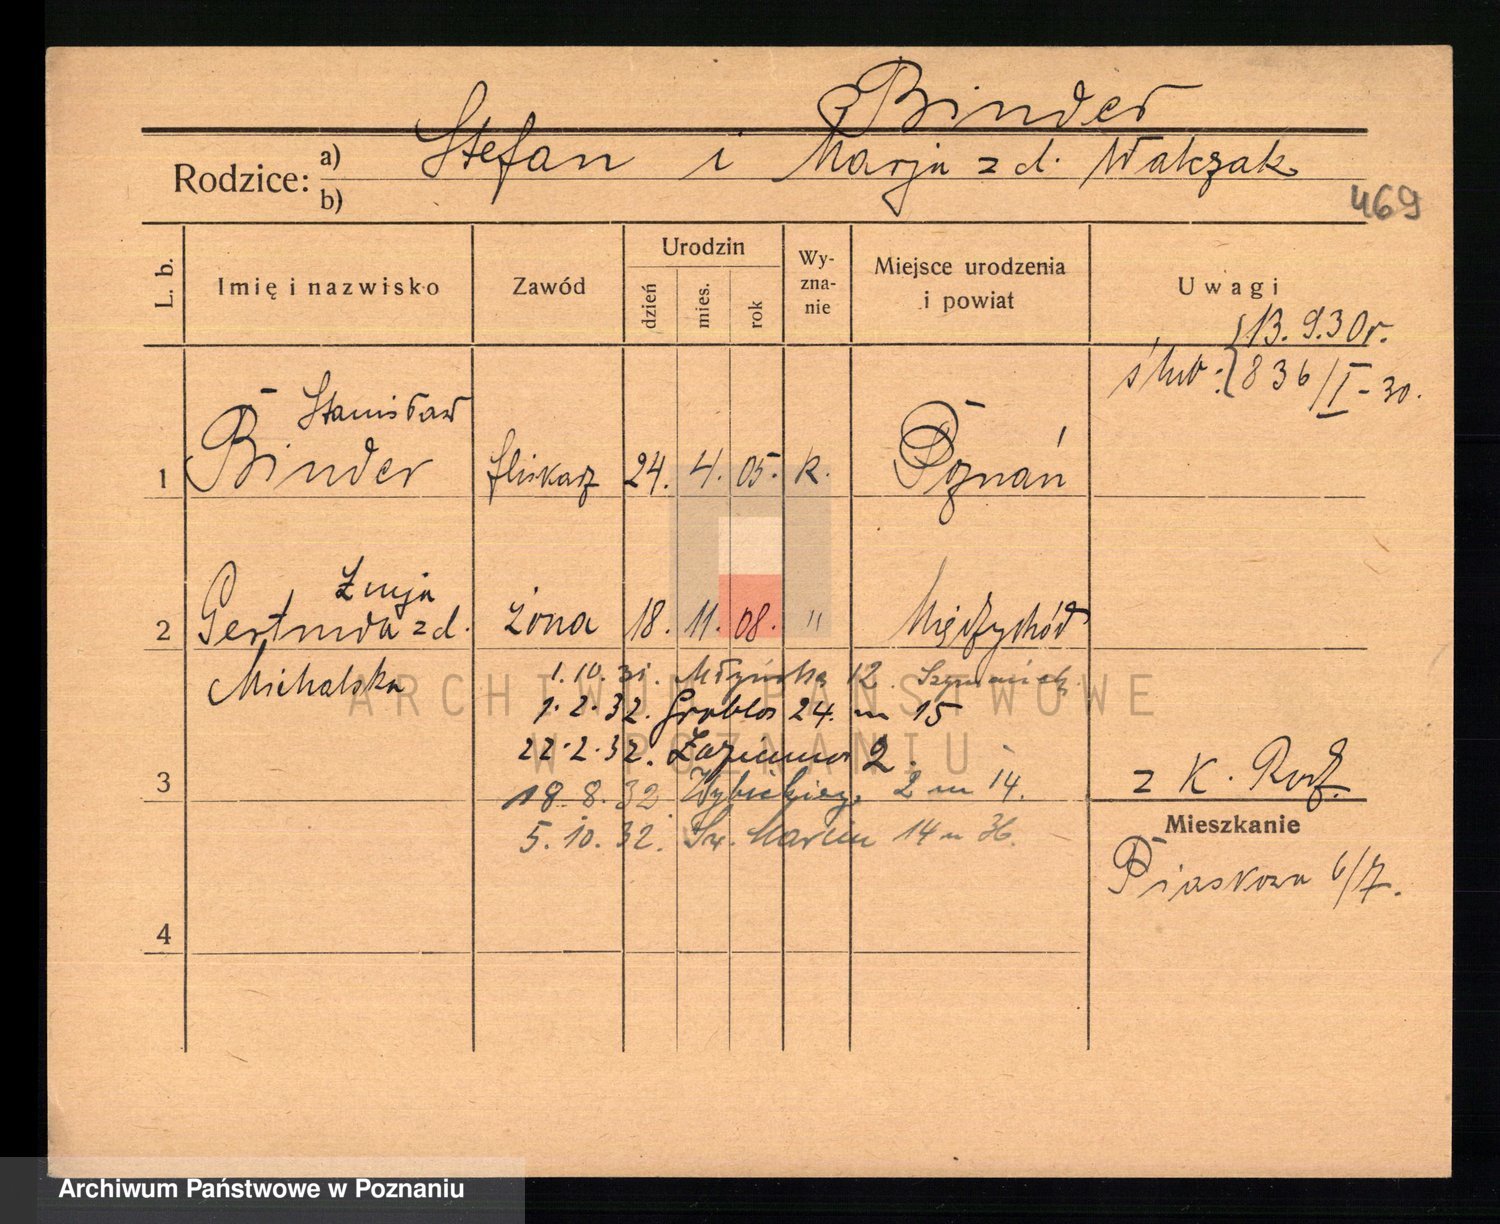 Binder
Rodzice: a) Stefan i Marja z d. Walczak
b)
469
L. b.
Imię i nazwisko
Zawód
Urodzin
dzień
mies.
rok
Wy-
zna-
nie
Miejsce urodzenia
i powiat
Uwagi
13. 9. 30 r.
ślub: 836/I - 30.
Stanisław
1 Binder fliskarz 24. 4. 05. k. Poznań
Łucja
2 Gertruda z d. żona 18. 11. 08. " Międzychód
Michalska
1. 10. 31. Młyńska 12.
1. 2. 32. Grobla 24. m 15
22. 2. 32. 2.
3
18. 8. 32. 2 m 14.
5. 10. 32. Św. Marcin 14 m 36.
z K. Rodz.
Mieszkanie
Piaskowa 6/7.
4
ARCHIWUM PAŃSTWOWE
W POZNANIU
Archiwum Państwowe w Poznaniu